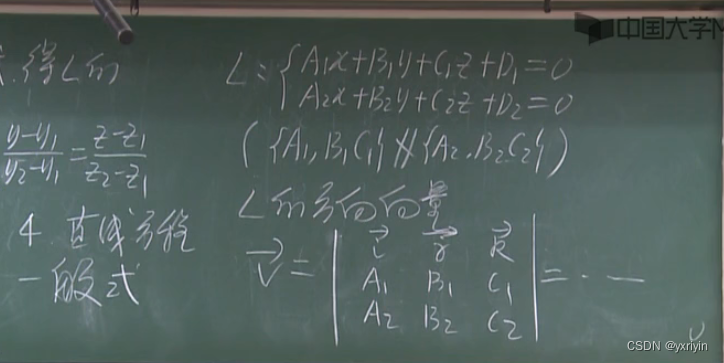 得L的
y-y₁/y₂-y₁ = z-z₁/z₂-z₁
4 直线方程
一般式
L: { A₁x+B₁y+C₁z+D₁=0
A₂x+B₂y+C₂z+D₂=0
({A₁,B₁C₁} ∦ {A₂,B₂C₂})
L的方向向量
v⃗ = | i⃗ j⃗ k⃗ |
| A₁ B₁ C₁ | = · —
| A₂ B₂ C₂ |
中国大学M
CSDN @yxriyin